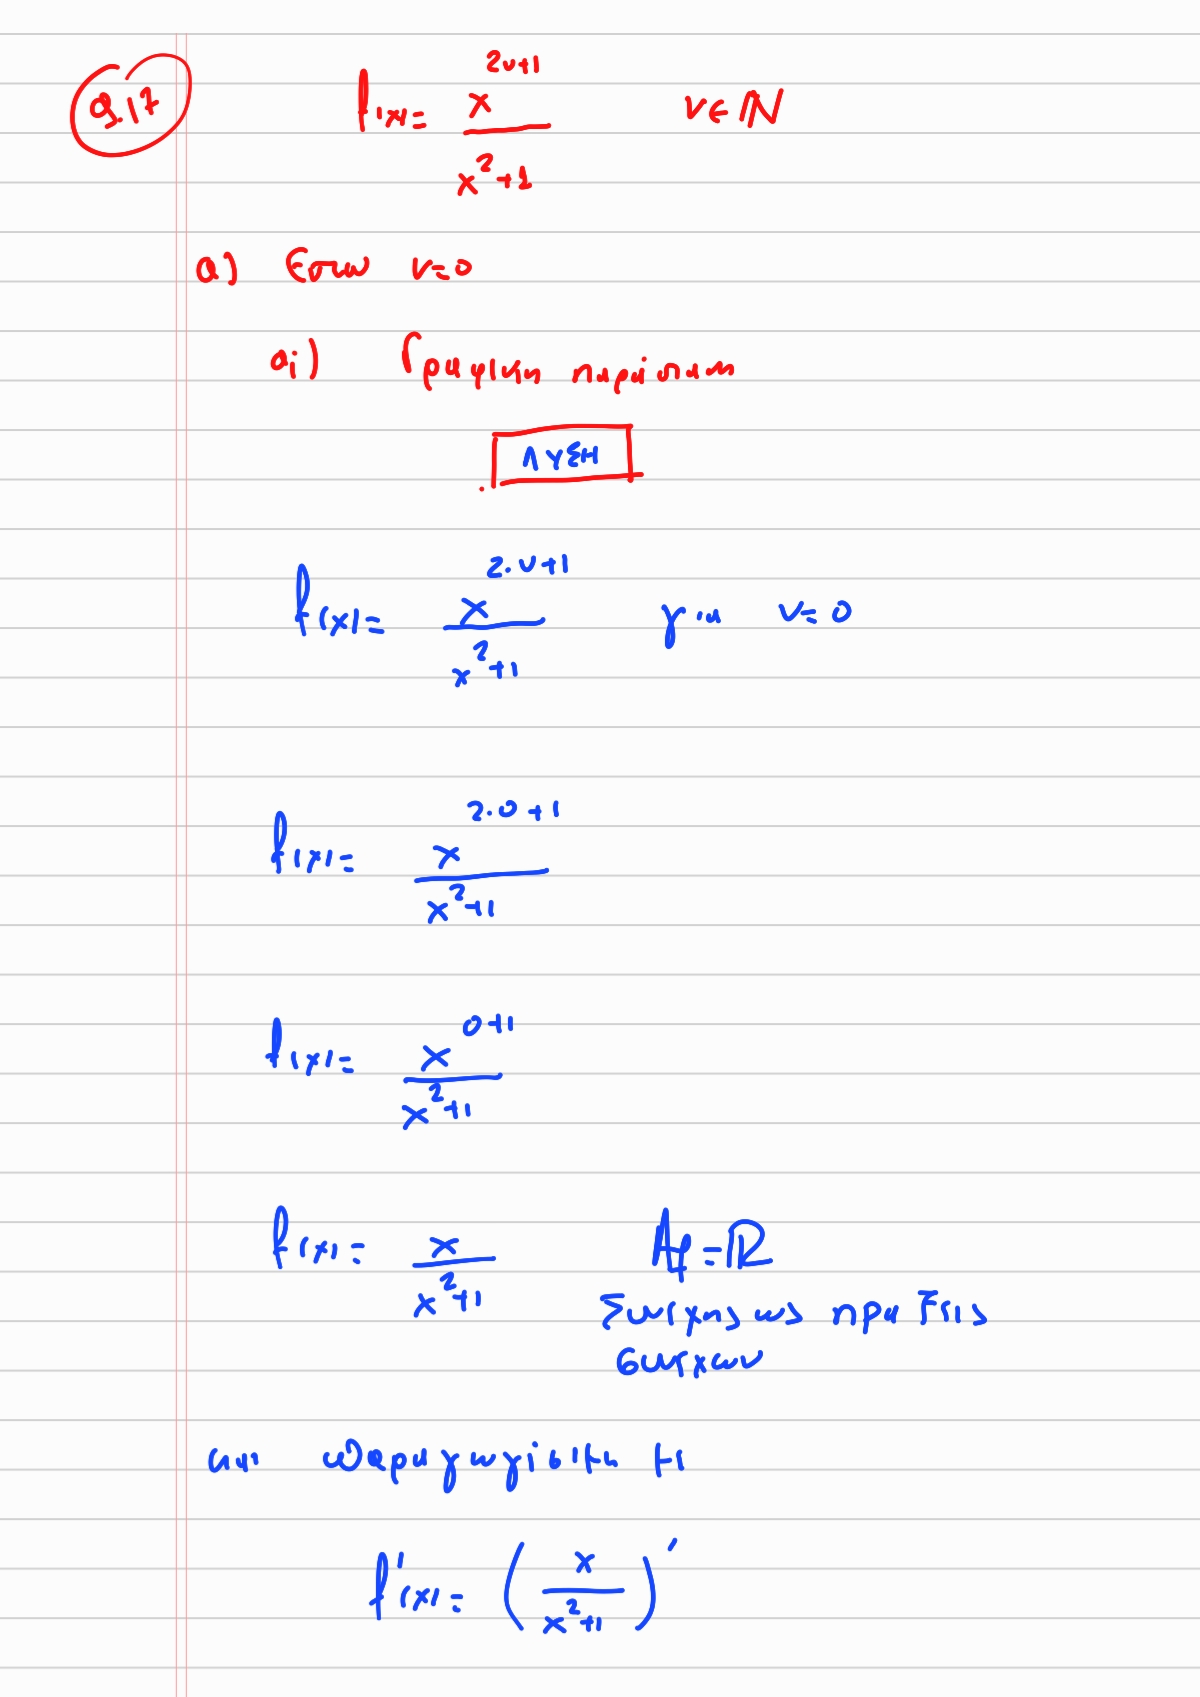 9.17 f(x) = x^{2ν+1} / (x^2+1) ν∈ℕ
α) Έστω ν=0
αi) Γραφική παράσταση
ΛΥΣΗ
f(x) = x^{2·ν+1} / (x^2+1) για ν=0
f(x) = x^{2·0+1} / (x^2+1)
f(x) = x^{0+1} / (x^2+1)
f(x) = x / (x^2+1) Af=ℝ
Συνεχης ως πραξεις
συνεχων
και παραγωγίσιμη με
f'(x) = (x / (x^2+1))'